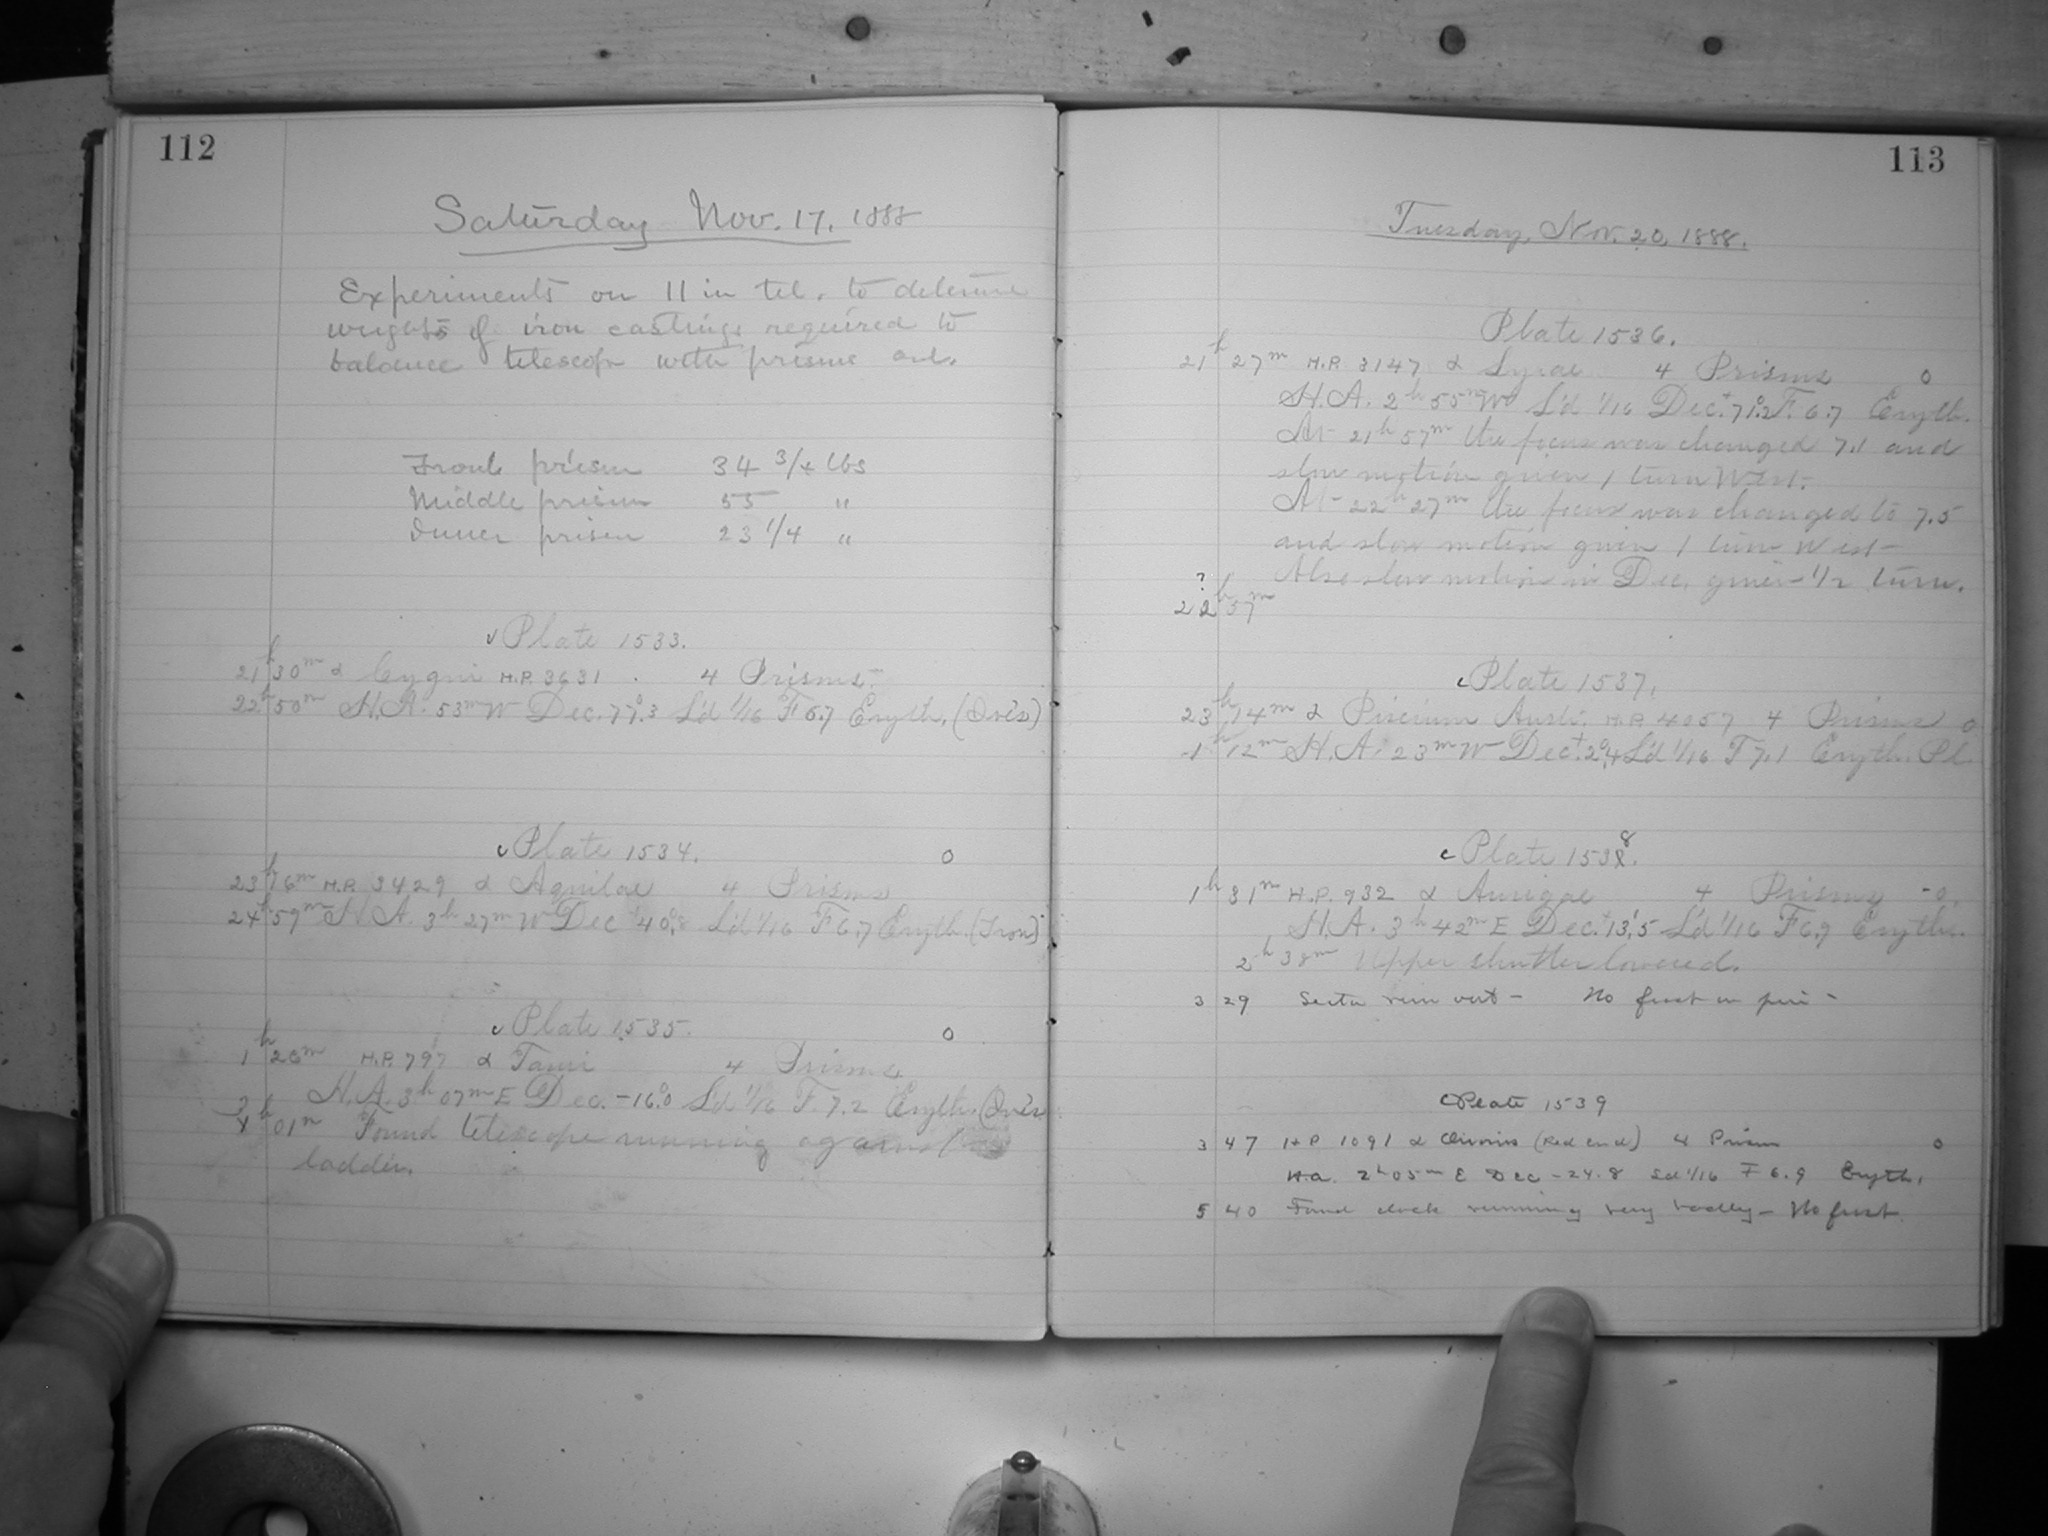 112
Saturday Nov. 17. 1888
Experiments on 11 in tel. to determine
weights of iron castings required to
balance telescope with prisms out.
Front prism 34 3/4 lbs
Middle prism 55 "
Inner prism 23 1/4 "
Plate 1533.
21h 30m α Cygni H.P. 3631 . 4 Prisms
22h 50m H.A. 53m W Dec. 77°.3 S'd 1/16 F 6.7 Eryth.
Plate 1534. 0
23h 16m H.P. 3429 α Aquilae 4 Prisms
24h 59m H.A. 3h 27m W Dec +40°.8 S'd 1/16 F 6.7 Eryth.
Plate 1535. 0
1h 26m H.P. 797 α Tauri 4 Prisms
H.A. 3h 07m E Dec. -16°.0 S'd 1/16 F. 7.2 Eryth.
01m Found telescope running against
ladder.
113
Tuesday, Nov. 20, 1888.
Plate 1536.
21h 27m H.P. 3147 α Lyrae 4 Prisms 0
H.A. 2h 55m W S'd 1/16 Dec. +71°.2 F. 6.7 Eryth.
At 21h 57m the focus was changed 7.1 and
slow motion given 1 turn West.
At 22h 27m the focus was changed to 7.5
and slow motion given 1 turn West
Also slow motion in Dec. given 1/2 turn.
?
22h 57m
Plate 1537.
23h 14m α Piscium Austr. H.P. 4057 4 Prisms 0
1h 12m H.A. 23m W Dec. +2°.4 S'd 1/16 F 7.1 Eryth. Pl.
Plate 1538.
1h 31m H.P. 932 α Aurigae 4 Prisms -0.
H.A. 3h 42m E Dec. +13°.5 S'd 1/16 F 6.9 Eryth.
2h 38m Upper shutter lowered.
3 29 run out - No frost on
Plate 1539
3 47 H P 1091 α Orionis (Red end) 4 Prism 0
H.a. 2h 05m E Dec -24.8 Sd 1/16 F 6.9 Eryth.
5 40 Found clock running very badly - No frost